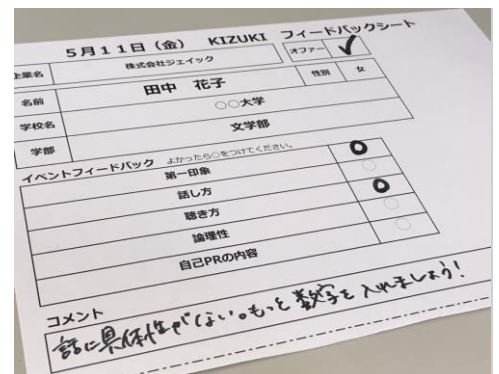 5月11日（金） KIZUKI フィードバックシート
企業名 株式会社ジェイック オファー ✓
名前 田中 花子 性別 女
学校名 ○○大学
学部 文学部
イベントフィードバック よかったら○をつけてください。
第一印象 ○
話し方 ○
聴き方 ○
論理性 ○
自己PRの内容 ○
コメント
話に具体性がない。もっと数字を入れましょう!